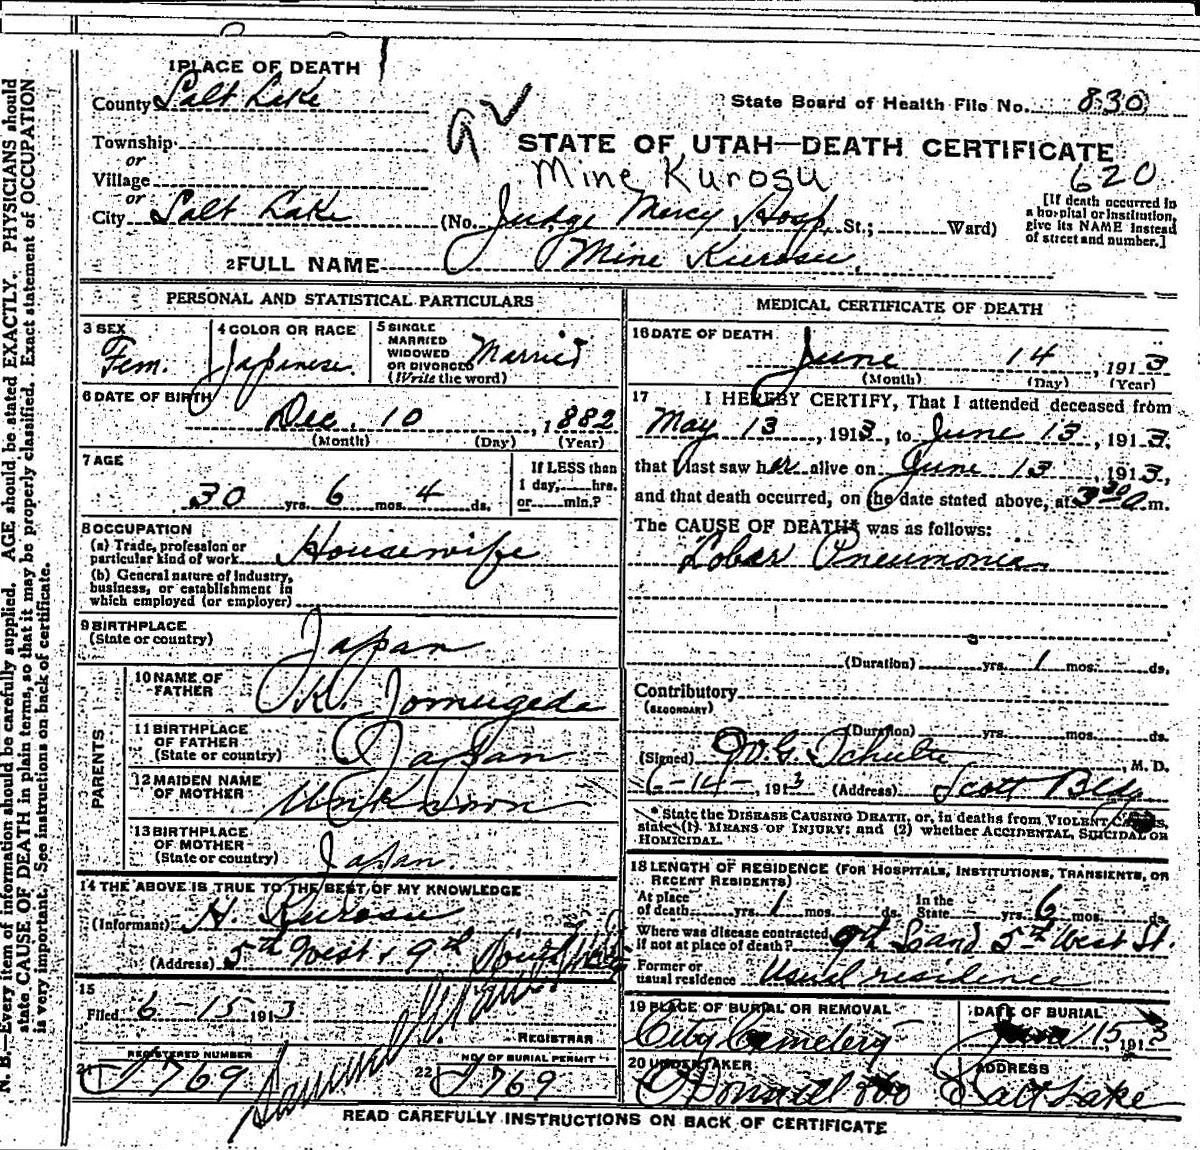 1 PLACE OF DEATH
County Salt Lake
State Board of Health File No. 830
Township
or
Village
or
City Salt Lake
STATE OF UTAH—DEATH CERTIFICATE
Mine Kurosu
620
(No. Judge Mercy Hosp. St.; Ward)
[If death occurred in
a hospital or institution,
give its NAME instead
of street and number.]
2 FULL NAME Mine Kurosu
PERSONAL AND STATISTICAL PARTICULARS
3 SEX
Fem.
4 COLOR OR RACE
Japanese.
5 SINGLE
MARRIED
WIDOWED
OR DIVORCED
(Write the word)
Married
6 DATE OF BIRTH
Dec. 10, 1882
(Month) (Day) (Year)
7 AGE
30 yrs. 6 mos. 4 ds.
If LESS than
1 day, hrs.
or min.?
8 OCCUPATION
(a) Trade, profession or
particular kind of work Housewife
(b) General nature of industry,
business, or establishment in
which employed (or employer)
9 BIRTHPLACE
(State or country) Japan
PARENTS
10 NAME OF
FATHER K. Jomugeda
11 BIRTHPLACE
OF FATHER
(State or country) Japan
12 MAIDEN NAME
OF MOTHER Unknown
13 BIRTHPLACE
OF MOTHER
(State or country) Japan
14 THE ABOVE IS TRUE TO THE BEST OF MY KNOWLEDGE
(Informant) H. Kurosu
(Address) 5th West & 9th South
15
Filed 6-15 1913
REGISTRAR
REGISTERED NUMBER
21 J769
NO. OF BURIAL PERMIT
22 J769
MEDICAL CERTIFICATE OF DEATH
16 DATE OF DEATH
June 14, 1913
(Month) (Day) (Year)
17 I HEREBY CERTIFY, That I attended deceased from
May 13, 1913, to June 13, 1913.
that I last saw her alive on June 13, 1913,
and that death occurred, on the date stated above, at 3 30 a m.
The CAUSE OF DEATH* was as follows:
Lobar Pneumonia
(Duration) yrs. 1 mos. ds.
Contributory
(SECONDARY)
(Duration) yrs. mos. ds.
(Signed) W. G. Schulte, M. D.
6-14-, 1913 (Address) Scott Bldg
* State the DISEASE CAUSING DEATH, or, in deaths from VIOLENT CAUSES,
state (1) MEANS OF INJURY; and (2) whether ACCIDENTAL, SUICIDAL OR
HOMICIDAL.
18 LENGTH OF RESIDENCE (FOR HOSPITALS, INSTITUTIONS, TRANSIENTS, OR
RECENT RESIDENTS)
At place
of death yrs. 1 mos. ds.
In the
State yrs. 6 mos. ds.
Where was disease contracted,
if not at place of death? 9th So and 5th West St.
Former or
usual residence Usual residence
19 PLACE OF BURIAL OR REMOVAL
City Cemetery
DATE OF BURIAL
June 15, 1913
20 UNDERTAKER
O'Donnell &Co
ADDRESS
Salt Lake
READ CAREFULLY INSTRUCTIONS ON BACK OF CERTIFICATE
N. B.—Every item of information should be carefully supplied. AGE should be stated EXACTLY. PHYSICIANS should
state CAUSE OF DEATH in plain terms, so that it may be properly classified. Exact statement of OCCUPATION
is very important. See instructions on back of certificate.